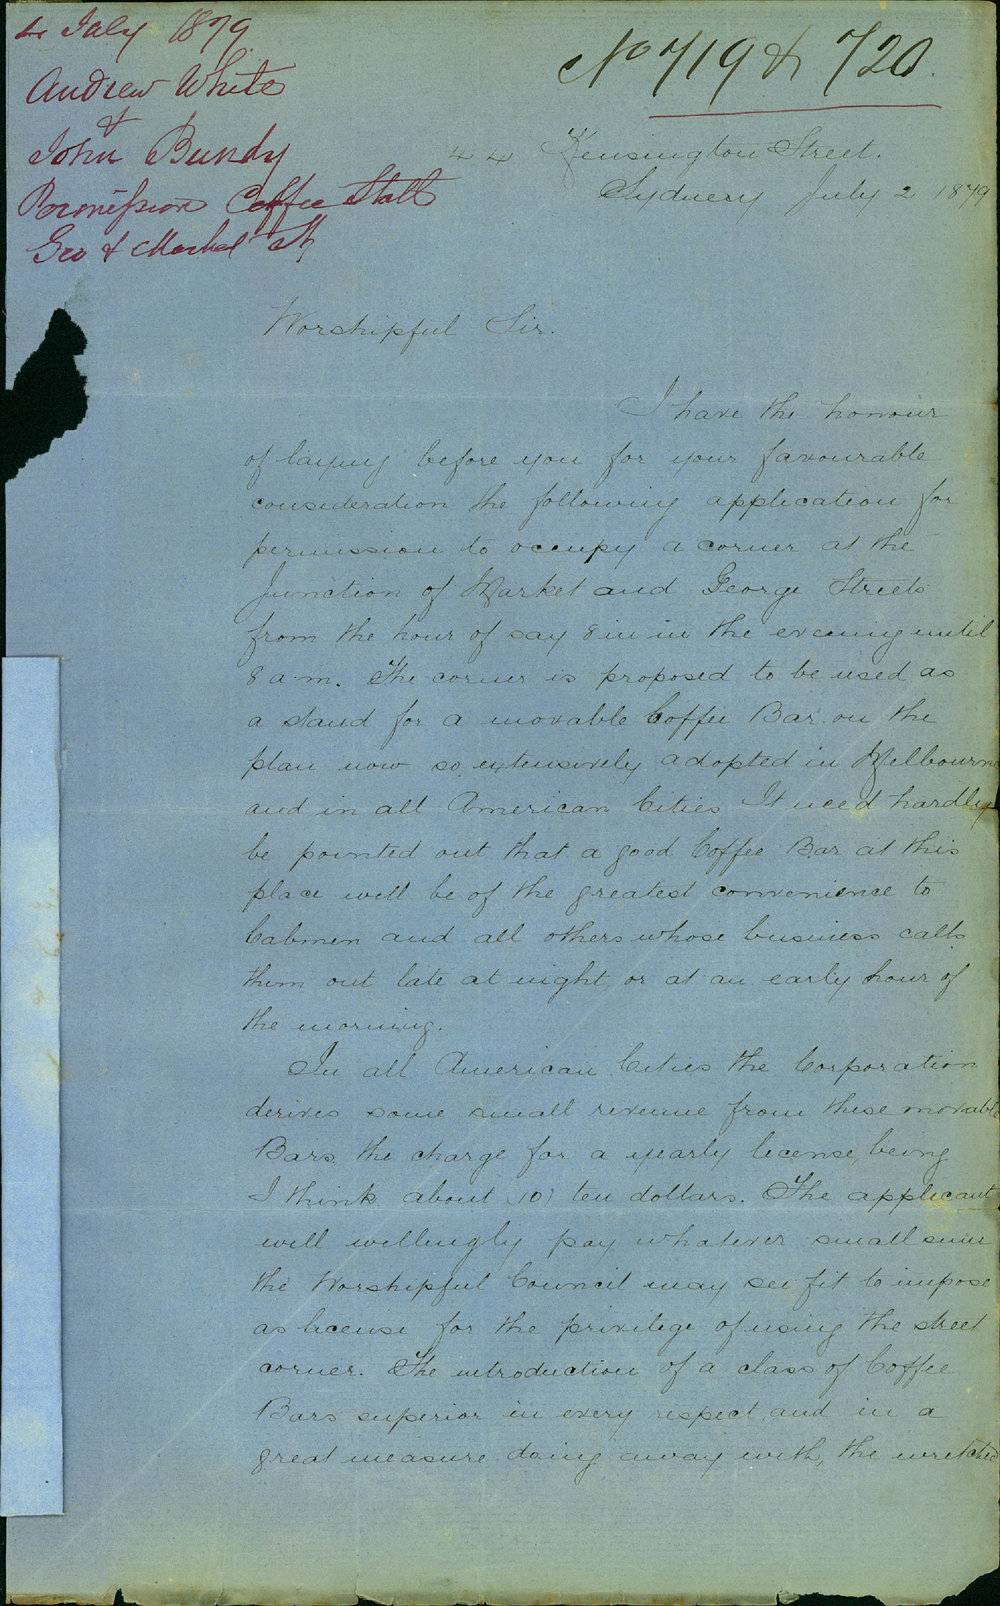 4 July 1879
Andrew White
&
John Bundy
Permission Coffee Stall
Geo & Market St
No 719 & 720.
44 Kensington Street.
Sydney July 2 1879
Worshipful Sir.
I have the honour
of laying before you for your favourable
consideration the following application for
permission to occupy a corner at the
Junction of Market and George Streets
from the hour of say 8 in in the evening until
8 a.m. The corner is proposed to be used as
a stand for a movable Coffee Bar on the
plan now so extensively adopted in Melbourne
and in all American Cities It need hardly
be pointed out that a good Coffee Bar at this
place will be of the greatest convenience to
Cabmen and all others whose business calls
them out late at night or at an early hour of
the morning.
In all American Cities the Corporation
derives some small revenue from these movable
Bars, the charge for a yearly license, being
I think about (10) ten dollars. The applicant
will willingly pay whatever small sum
the Worshipful Council may see fit to impose
as license for the privilege of using the street
corner. The introduction of a class of Coffee
Bars superior in every respect, and in a
great measure doing away with, the wretched